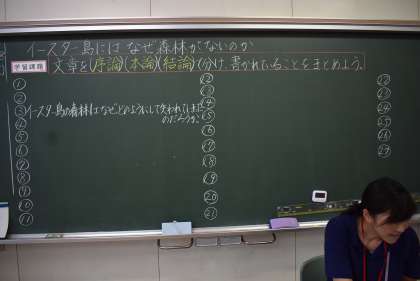 イースター島にはなぜ森林がないのか
学習課題 文章を(序論)(本論)(結論)で分け、書かれていることをまとめよう。
①
②
③ イースター島の森林は、なぜ、どのようにして失われてしまったのだろうか。
④
⑤
⑥
⑦
⑧
⑨
⑩
⑪
⑫
⑬
⑭
⑮
⑯
⑰
⑱
⑲
⑳
㉑
㉒
㉓
㉔
㉕
㉖
㉗